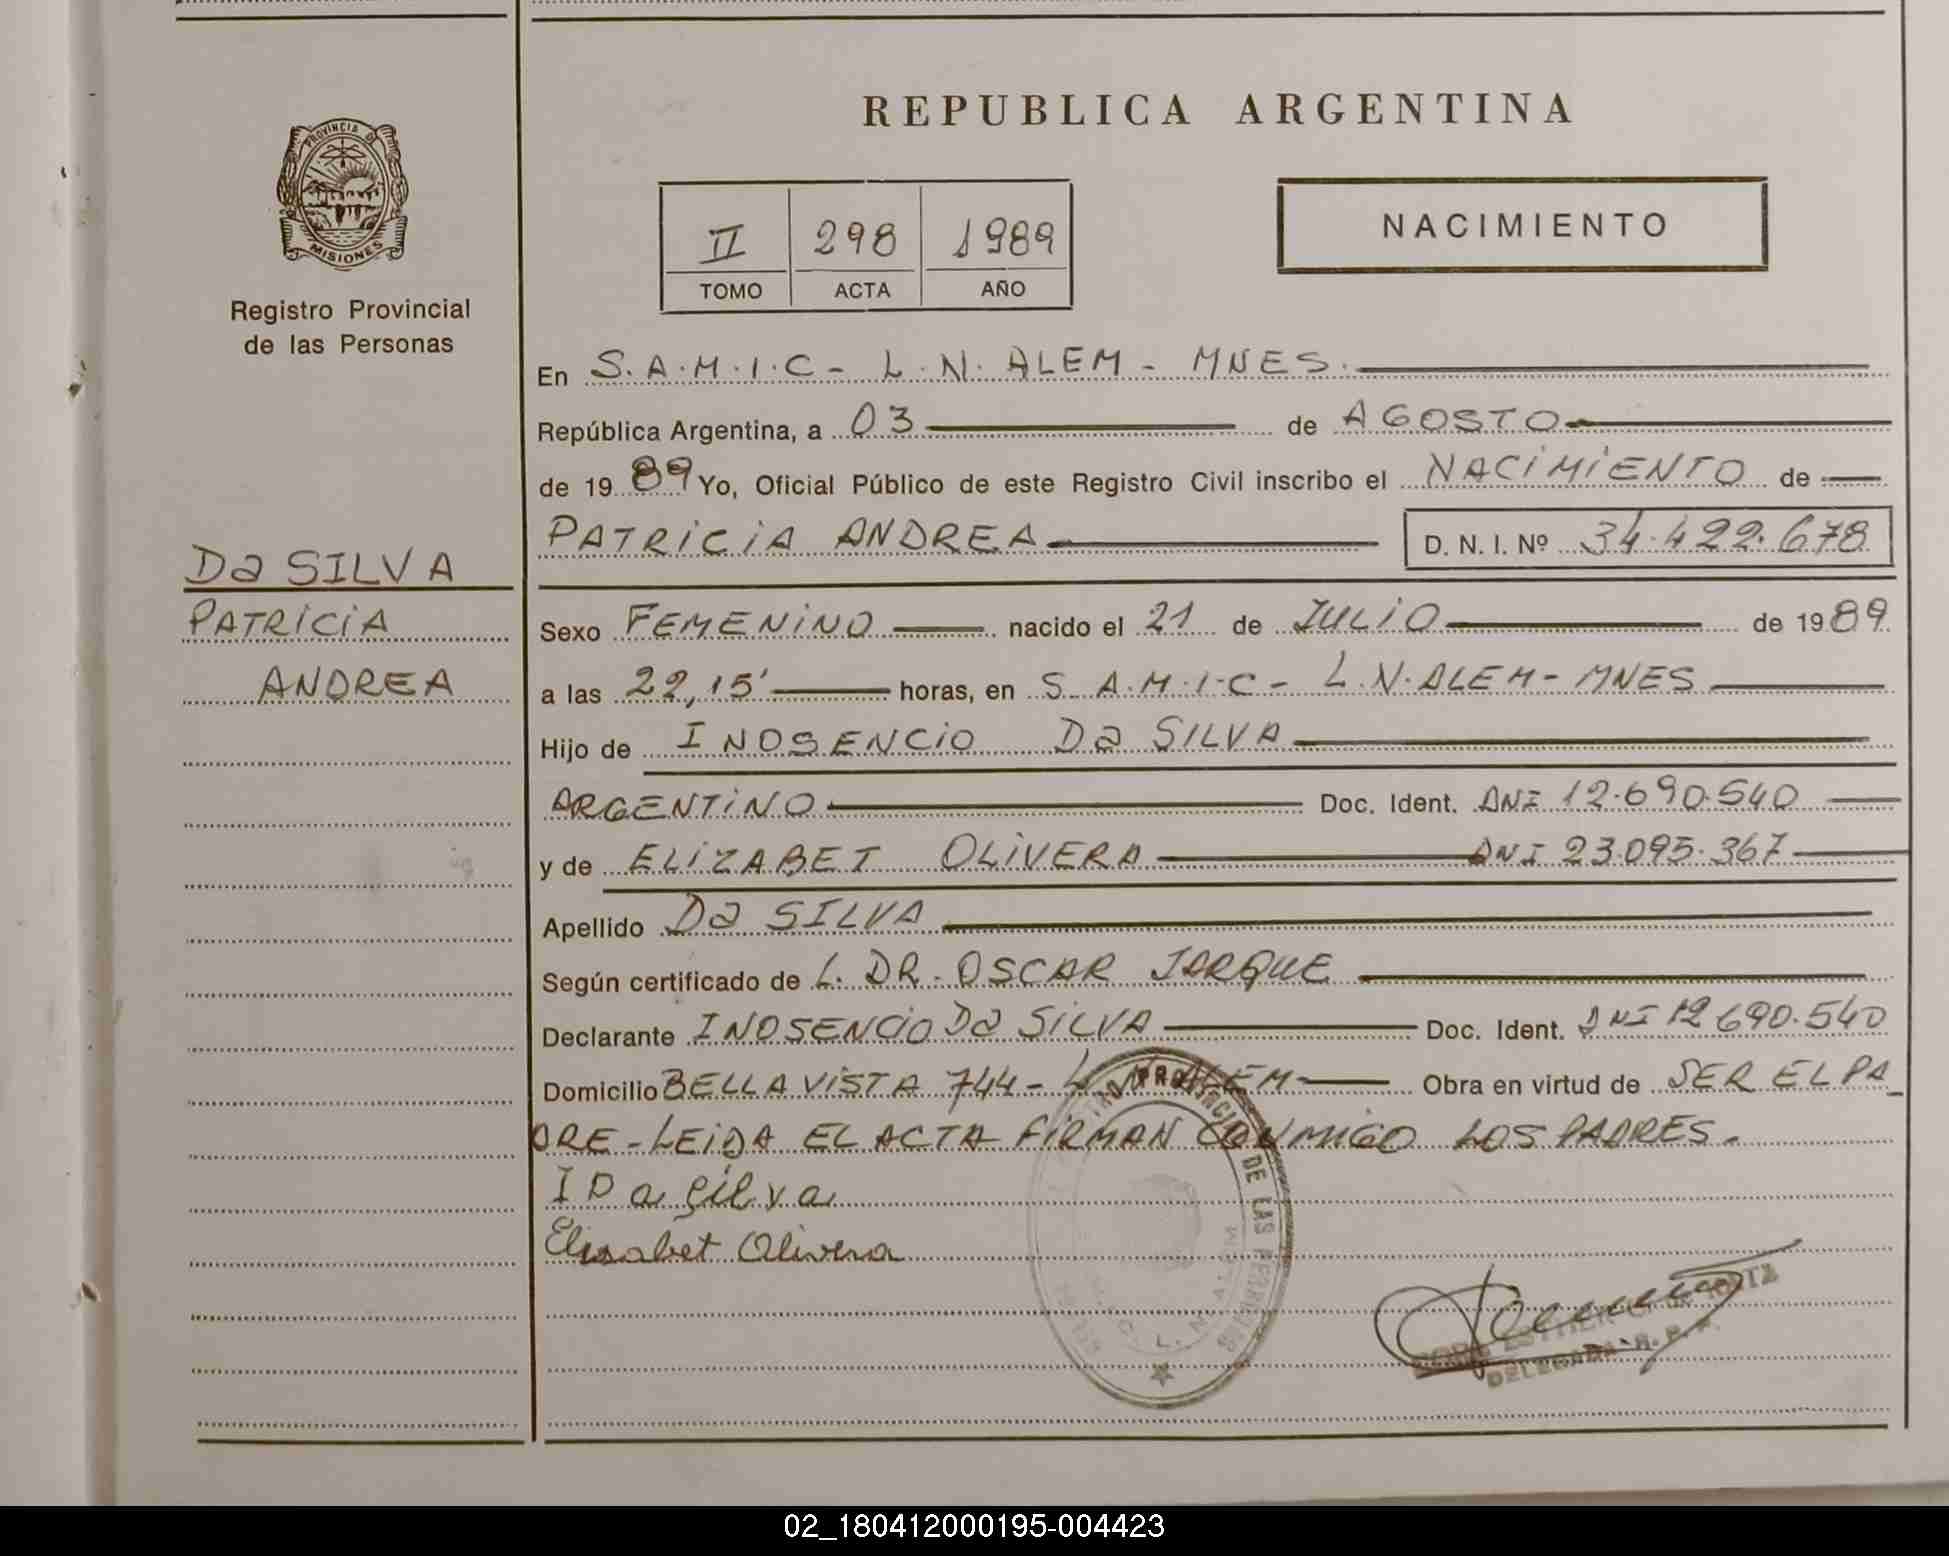 REPUBLICA ARGENTINA
PROVINCIA D
MISIONES
Registro Provincial
de las Personas
II 298 1989
TOMO ACTA AÑO
NACIMIENTO
En S.A.M.I.C - L.N. ALEM - MNES.
República Argentina, a 03 de AGOSTO
de 1989 Yo, Oficial Público de este Registro Civil inscribo el NACIMIENTO de
PATRICIA ANDREA D. N. I. Nº 34.422.678
Da SILVA
PATRICIA
ANDREA
Sexo FEMENINO nacido el 21 de JULIO de 1989
a las 22,15' horas, en S.A.M.I.C - L.N.ALEM - MNES
Hijo de INOSENCIO Da SILVA
ARGENTINO Doc. Ident. DNI 12.690.540
y de ELIZABET OLIVERA DNI 23.095.367
Apellido Da SILVA
Según certificado de L. DR. OSCAR JARQUE
Declarante INOSENCIO Da SILVA Doc. Ident. DNI 12690.540
Domicilio BELLA VISTA 744 - L.N. ALEM Obra en virtud de SER EL PA
DRE - LEIDA EL ACTA FIRMAN CONMIGO LOS PADRES.
I Da Silva
Elisabet Olivera
DE LAS
L. N. ALEM
DELEGADA R. P. P.
02_180412000195-004423